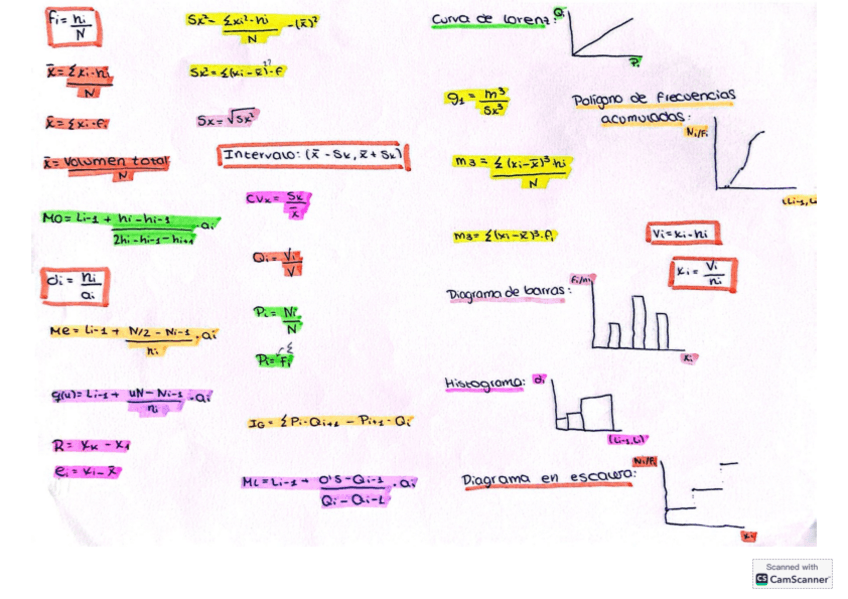 fi = ni/N
x̄ = Σxi·ni/N
x̄ = Σxi·fi
x̄ = Volumen total/N
Mo = Li-1 + hi-hi-1/2hi-hi-1-hi+1 · ai
di = ni/ai
Me = Li-1 + N/2 - Ni-1/ni · ai
q(u) = Li-1 + uN - Ni-1/ni · ai
R = xk - x1
ei = xi - x̄
Sx² = Σxi²·ni/N - (x̄)²
Sx² = Σ(xi - x̄)²·fi
Sx = √Sx²
Intervalo: (x̄ - Sx, x̄ + Sx)
CVx = Sx/x̄
Qi = Vi/V
Pi = Ni/N
Pi = Fi
IG = ΣPi·Qi+1 - Pi+1·Qi
ML = Li-1 + 0'5 - Qi-1/Qi - Qi-1 · ai
Curva de Lorenz:
Qi
Pi
g1 = m3/Sx³
m3 = Σ(xi-x̄)³·ni/N
m3 = Σ(xi-x̄)³·fi
Polígono de frecuencias
acumuladas:
Ni/Fi
(Li-1, Li
Vi = xi·ni
xi = Vi/ni
Diagrama de barras:
fi/ni
xi
Histograma:
di
(Li-1, Li)
Diagrama en escalera:
Ni/Fi
xi
Scanned with
CS CamScanner